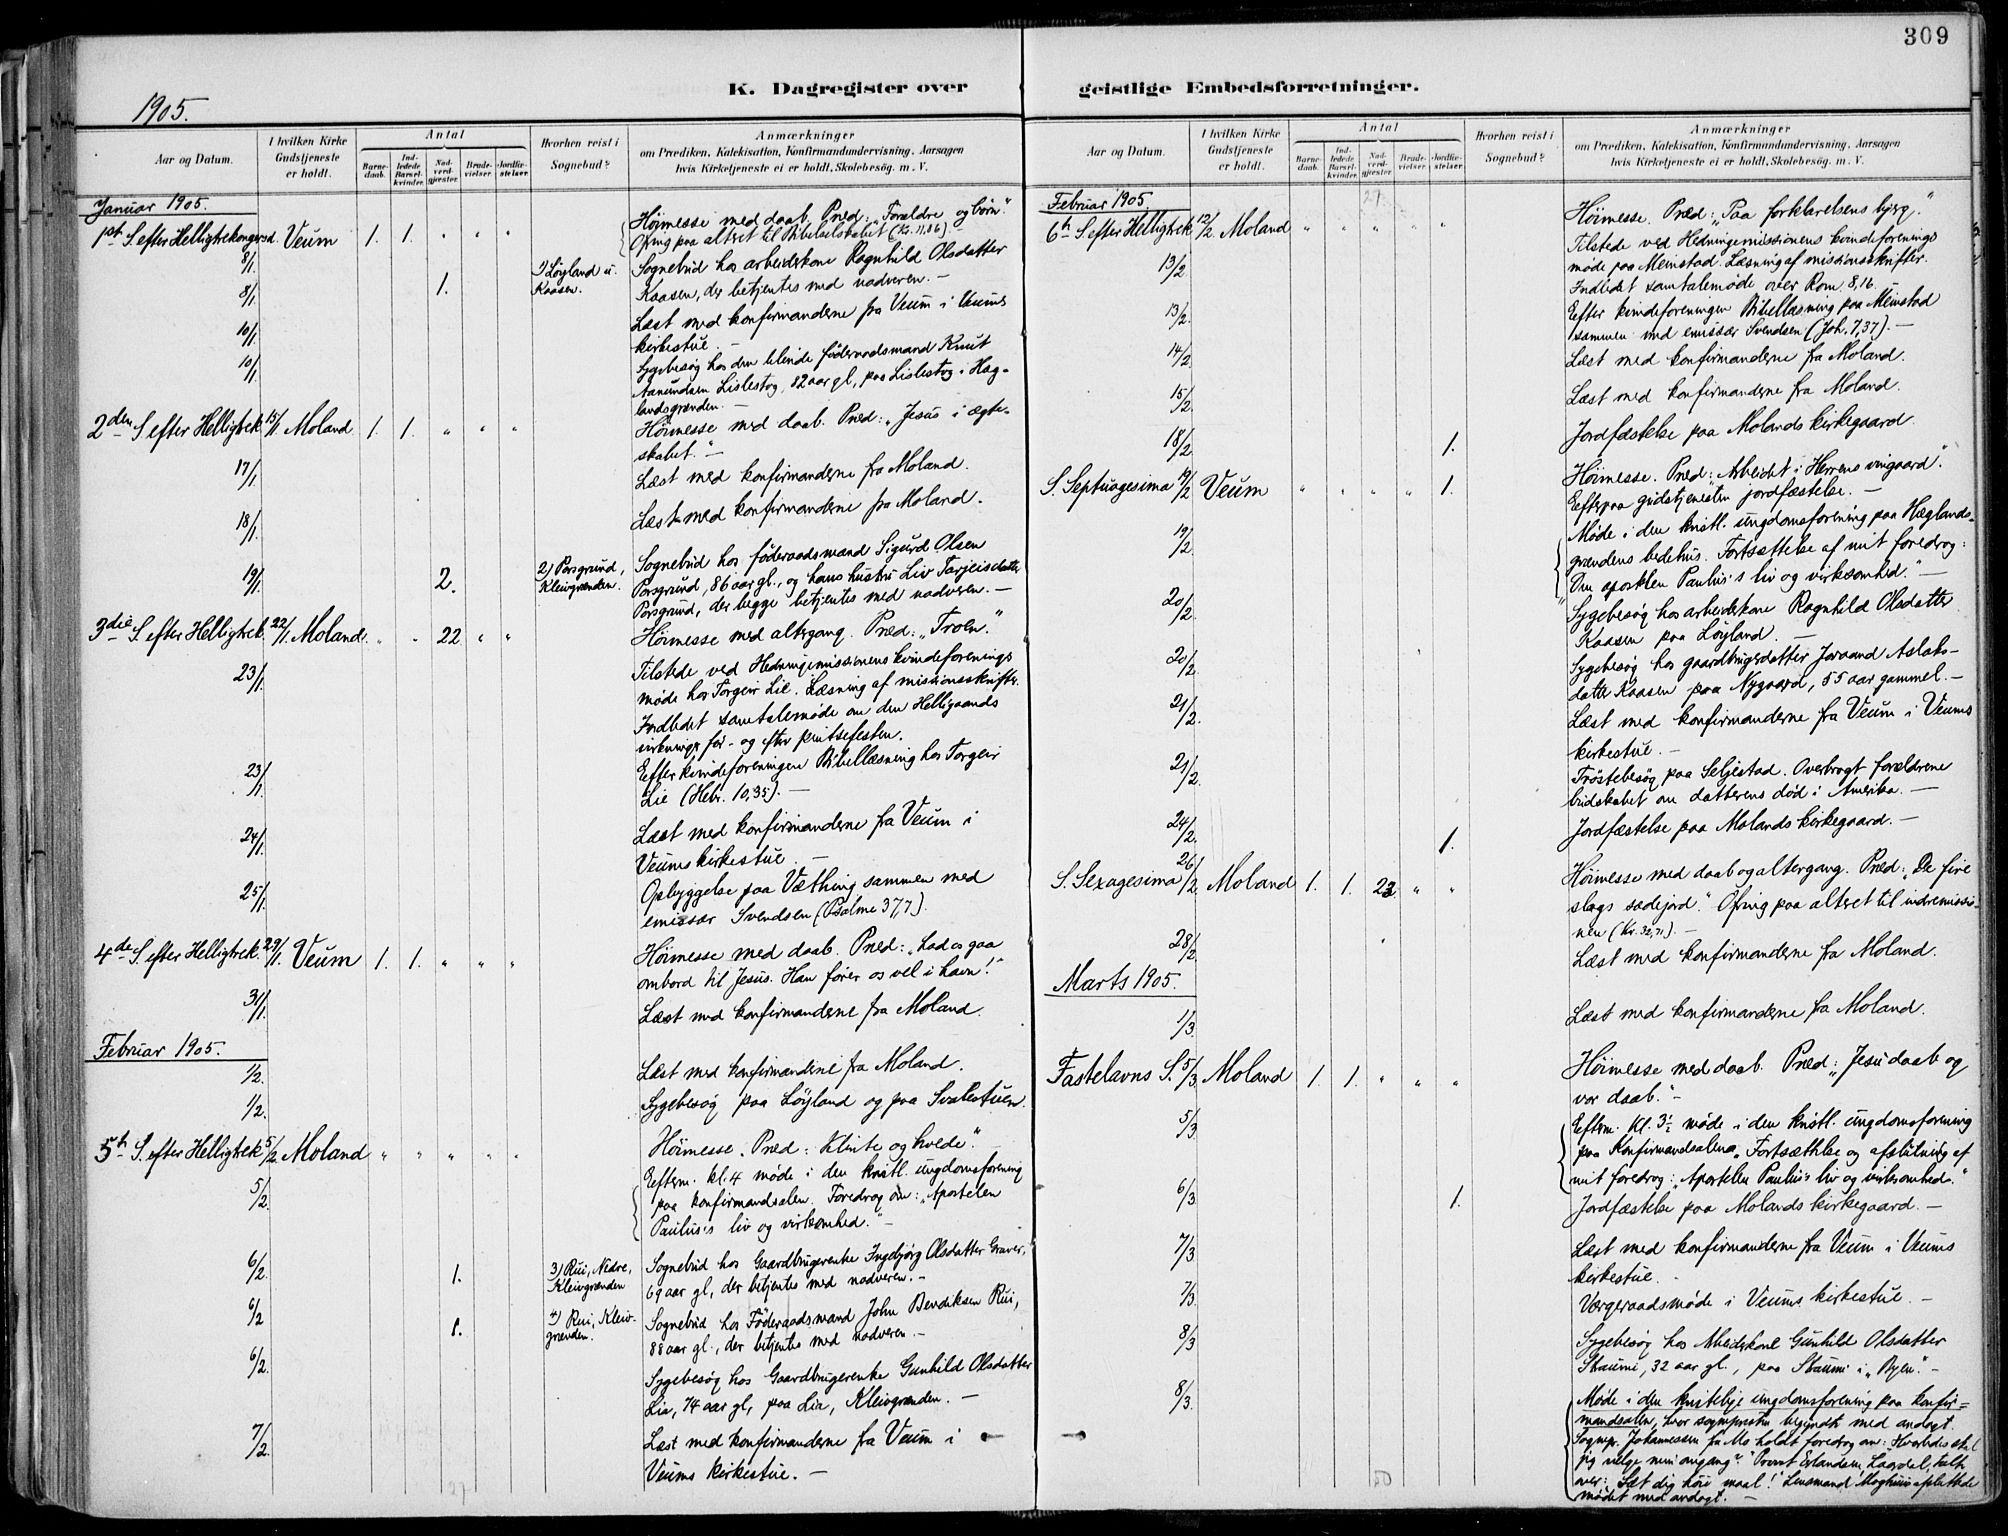 309
K. Dagregister over geistlige Embedsforretninger.
1905.
Aar og Datum.
I hvilken Kirke Gudstjeneste er holdt.
Antal
Barnedaab.
Indledede Barselkvinder.
Nadverdgjester
Brudevielser.
Jordfæstelser
Hvorhen reist i Sognebud?
Anmærkninger
om Prædiken, Katekisation, Konfirmandundervisning, Aarsagen
hvis Kirketjeneste ei er holdt, Skolebesøg. m. V.
Januar 1905.
1st S. efter Helligtrekongersd. 8/1. Veum 1. 1. " " "
Höimesse med daab. Præd.: "Forældre og børn."
Ofring paa alteret til Bibelselskabet (Kr. 11,86).
8/1. 1. 1) Løyland u. Kaasen.
Sognebud hos arbeidskone Ragnhild Olsdatter
Kaasen, der betjentes med nadveren. –
10/1.
Læst med konfirmanderne fra Veum i Veums
kirkestue. –
10/1.
Sygebesøg hos den blinde føderaadsmand Knut
Aanundsen Lislestog, 82 aar gl., paa Lislestog i Hæg-
landsgrænden. –
2den S. efter Helligtrek. 15/1. Moland 1. 1. " " "
Höimesse med daab. Præd.: "Jesus i ægte-
skabet." –
17/1.
Læst med konfirmanderne fra Moland.
18/1.
Læst med konfirmanderne fra Moland.
19/1. 2. 2) Porsgrund, Kleivgrænden.
Sognebud hos føderaadsmand Sigurd Olsen
Porsgrund, 86 aar gl., og hans hustru Liv Tarjeisdatter
Porsgrund, der begge betjentes med nadveren. –
3die S. efter Helligtrek. 22/1. Moland. " " 22 " "
Höimesse med altergang. Præd.: "Troen."
23/1.
Tilstede ved Hedningemissionens kvindeforenings
møde hos Torgeir Lie. Læsning af missionsskrifter.
Indledet samtalemøde om den Helligaands
virkninger før- og efter pintsefesten.
23/1.
Efter kvindeforeningen Bibellæsning hos Torgeir
Lie (Hebr. 10,35). –
24/1.
Læst med konfirmanderne fra Veum i
Veums kirkestue. –
25/1.
Opbyggelse paa Væthing sammen med
emissær Svendsen (Psalme 37,7).
4de S. efter Helligtrek. 29/1. Veum 1. 1. " " "
Höimesse med daab. Præd.: "Lad os gaa
ombord til Jesus. Han fører os vel i havn!"
31/1.
Læst med konfirmanderne fra Moland.
Februar 1905.
1/2.
Læst med konfirmanderne fra Moland.
1/2.
Sygebesøg paa Løyland og paa Svalestuen.
5th S. efter Helligtrek. 5/2. Moland " " " " "
Höimesse. Præd: Klinte og hvede".
5/2.
Efterm. kl. 4 møde i den kristl. ungdomsforening
paa konfirmandsalen. Foredrag om: "Apostelen
Paulus's liv og virksomhed." –
6/2. 1. 3) Rui, Nedre, Kleivgrænden
Sognebud hos Gaardbrugerenke Ingebjörg Olsdatter Graver,
69 aar gl., der betjentes med nadveren. –
6/2 1. 4) Rui, Kleiv-grænden.
Sognebud hos Føderaadsmand John Bendiksen Rui,
88 aar gl., der betjentes med nadveren. –
6/2.
Sygebesøg hos Gaardbrugerenke Gunhild Olsdatter
Lia, 74 aar gl., paa Lia, Kleivgrænden. –
7/2.
Læst med konfirmanderne fra Veum i
Veums kirkestue. –
27
Aar og Datum.
I hvilken Kirke Gudstjeneste er holdt.
Antal
Barnedaab.
Indledede Barselkvinder.
Nadverdgjester
Brudevielser.
Jordfæstelser
Hvorhen reist i Sognebud?
Anmærkninger
om Prædiken, Katekisation, Konfirmandundervisning, Aarsagen
hvis Kirketjeneste ei er holdt, Skolebesøg. m. V.
27.
Februar 1905.
6th S. efter Helligtrek. 12/2. Moland " " " " "
Höimesse. Præd.: "Paa forklarelsens bjerg."
13/2.
Tilstede ved Hedningemissionens kvindeforenings
møde paa Meinstad. Læsning af missionsskrifter.
Indledet samtalemøde over Rom. 8,16.
13/2.
Efter kvindeforeningen Bibellæsning paa Meinstad
sammen med emissær Svendsen (Joh. 7,37). –
14/2.
Læst med konfirmanderne fra Moland.
15/2.
Læst med konfirmanderne fra Moland.
18/2. 1.
Jordfæstelse paa Molands kirkegaard.
S. Septuagesima 19/2 Veum " " " " 1.
Höimesse. Præd.: "Arbeidet i Herrens vingaard."
Efterpaa gudstjenesten jordfæstelse. –
19/2.
Møde i den kristl. ungdomsforening paa Hæglands-
grændens bedehus. Fortsættelse af mit foredrag:
"Om apostlen Paulus's liv og virksomhed." –
20/2.
Sygebesøg hos arbeidskone Ragnhild Olsdatter
Kaasen paa Løyland. –
20/2.
Sygebesøg hos gaardbrugerdatter Joraand Aslaks-
datter Kaasen paa Nygaard, 55 aar gammel. –
21/2.
Læst med konfirmanderne fra Veum i Veums
kirkestue. –
21/2.
Trøstebesøg paa Seljestad. Overbragt forældrene
budskabet om datterens død i Amerika. –
24/2. 1.
Jordfæstelse paa Molands kirkegaard. –
S. Sexagesima 26/2. Moland 1. 1. 23. " "
Höimesse med daab og altergang. Præd.: "De fire
slags sædejord." Ofring paa alteret til indremissio-
nen (Kr. 32,71). –
28/2.
Læst med konfirmanderne fra Moland.
Marts 1905.
1/3.
Læst med konfirmanderne fra Moland.
Fastelavns S. 5/3. Moland 1. 1. " " "
Höimesse med daab. Præd.: "Jesu daab og
vor daab." –
5/3.
Efterm. kl. 3½ møde i den kristl. ungdomsforening
paa Konfirmandsalen. Fortsættelse og afslutning af
mit foredrag: "Apostelen Paulus's liv og virksomhed."
6/3. 1.
Jordfæstelse paa Molands kirkegaard. –
7/3.
Læst med konfirmanderne fra Veum i Veums
kirkestue. –
7/3.
Værgeraadsmøde i Veums kirkestue. –
8/3.
Sygebesøg hos Arbeidskone Gunhild Olsdatter
32 aar gl., paa i "Byen". –
8/3.
Møde i den kristelige ungdomsforening paa konfir-
mandsalen, hvor sognepresten begyndte med andagt.
Sognepr. Johannessen fra Mo holdt foredrag om: Hvorledes skal
jeg vælge min omgang?" Provst Erlandsen, Laardal, talte
over: Sæt dig høie maal! Lensmand afsluttede
mødet med andagt. –
50